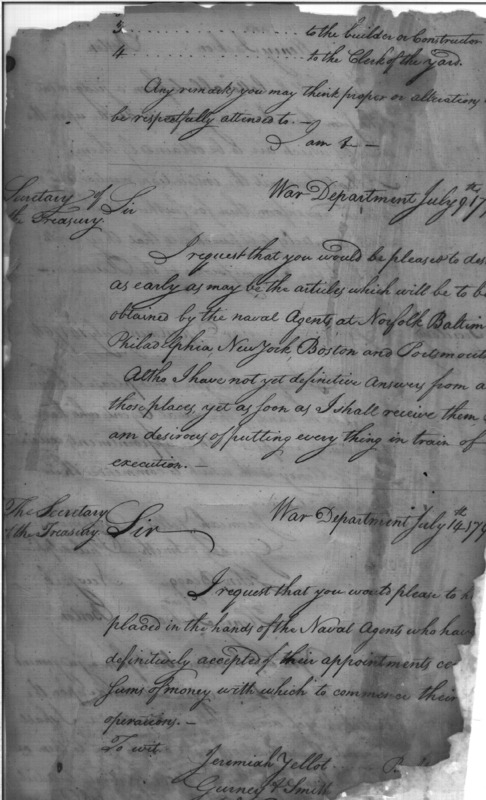 3 . . . . . . . . . . . . . . . . . to the builder or Constructor
4 . . . . . . . . . . . . . . . . . to the Clerk of the yard.
Any remarks you may think proper or alterations
be respectfully attended to. —
I am &c —
Secretary of the Treasury. Sir War Department July 9th 17
I request that you would be pleased to des
as early as may be the articles which will be to be
obtained by the naval Agents, at Norfolk Baltim
Philadelphia, New York, Boston and Portsmout
Altho I have not yet definitive answers from a
those places, yet as soon as I shall receive them
am desirous of putting every thing in train of
execution. —
The Secretary of the Treasury Sir War Department July 14th 179
I request that you would please to
placed in the hands of the Naval Agents who have
definitively accepted of their appointments ce
Sums of money with which to commence their
operations. —
To wit
Jeremiah Yellot
Gurney & Smith